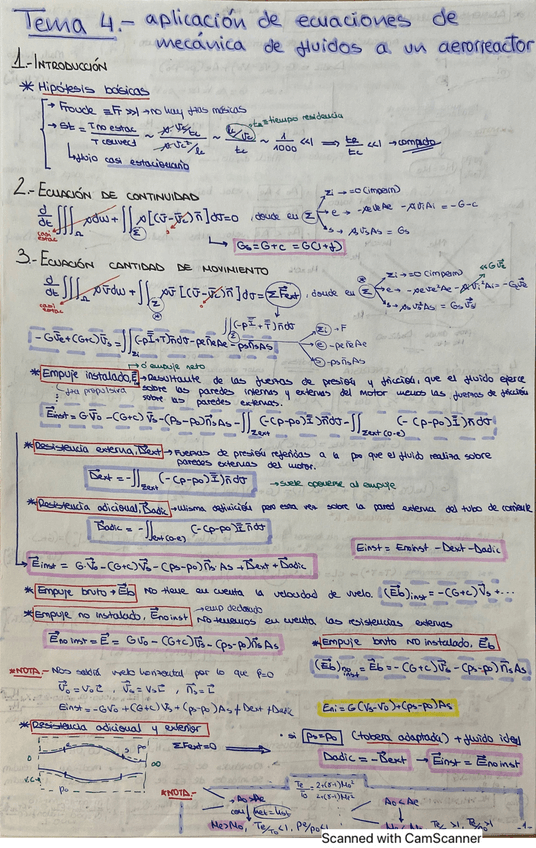 Tema 4.- aplicación de ecuaciones de
mecánica de fluidos a un aerorreactor
1.- INTRODUCCIÓN
* Hipótesis básicas
→ Froude ≡ Fr >>1 → no hay fzas másicas
tr ≡ tiempo residencia
→ St = T no estac / T convect ~ 1/1000 <<1 ⟹ tr/tc <<1 → compacto
↳ flujo casi estacionario
2.- ECUACIÓN DE CONTINUIDAD
d/dt ∭Ω ρdω + ∬Σ ρ[(v̄-v̄c)n̄]dσ=0, donde en Σ
Σi → =0 (imperm)
e → -ρeVeAe -ρiViAi = -G-c
s → ρsVsAs = Gs
casi estac
Gs = G+c = G(1+f)
3.- ECUACIÓN CANTIDAD DE MOVIMIENTO
d/dt ∭Ω ρv̄dω + ∬Σ ρv̄ [(v̄-v̄c)n̄]dσ = ΣF̄ext, donde en Σ
Σi → =0 (imperm)
casi estac
∬Σ(-pĪ+τ̄)n̄dσ
Σi → F
e → -pen̄eAe
s → -psn̄sAs
-Gv̄e+(G+c)v̄s = ∬Σi(-pĪ+τ̄)n̄dσ - pen̄eAe - psn̄sAs
ó empuje neto
* Empuje instalado, Ē → Resultante de las fuerzas de presión y fricción, que el fluido ejerce
fza propulsiva
sobre las paredes internas y externas del motor menos las fuerzas de fricción
sobre las paredes externas.
Ēinst = Gv̄0 - (G+c)v̄s - (ps-p0)n̄sAs - ∬Σext (-(p-p0)Ī)n̄dσ - ∬Σext(0-e) (-(p-p0)Ī)n̄dσ
* Resistencia externa, D̄ext → Fuerzas de presión referidas a la p0 que el fluido realiza sobre
paredes externas del motor.
D̄ext = -∬Σext (-(p-p0)Ī)n̄dσ → suele oponerse al empuje
* Resistencia adicional, D̄adic → misma definición pero esta vez sobre la pared externa del tubo de corriente
D̄adic = -∬ext(0-e) (-(p-p0)Ī)n̄dσ
Einst = Enoinst - Dext - Dadic
Ēinst = Gv̄0 - (G+c)v̄s - (ps-p0)n̄sAs + D̄ext + D̄adic
* Empuje bruto → Ēb No tiene en cuenta la velocidad de vuelo. (Ēb)inst = -(G+c)v̄s + ...
* Empuje no instalado, Ēnoinst No tenemos en cuenta las resistencias externas
Ēnoinst = Ē = Gv̄0 - (G+c)v̄s - (ps-p0)n̄sAs
* Empuje bruto NO instalado, Ēb
(Ēb)no inst = Ēb = -(G+c)v̄s - (ps-p0)n̄sAs
*NOTA.-
V̄0 = V0ī, V̄s = Vsī, n̄s = ī
Einst = -GV0 + (G+c)Vs + (ps-p0)As + Dext + Dadic
Eni = G(Vs-V0) + (ps-p0)As
* Resistencia adicional y exterior
ΣFext = 0
• si ps = p0 (tobera adaptada) + fluido ideal
Dadic = -D̄ext → Ēinst = Ēnoinst
p0
0
∞
p0
*NOTA.-
Te/T0 = 2+(γ-1)M0² / 2+(γ-1)Me²
→ A0 > Ae
Me > M0, Te/T0 <1, pe/p0 <1
A0 < Ae
-1-
Scanned with CamScanner